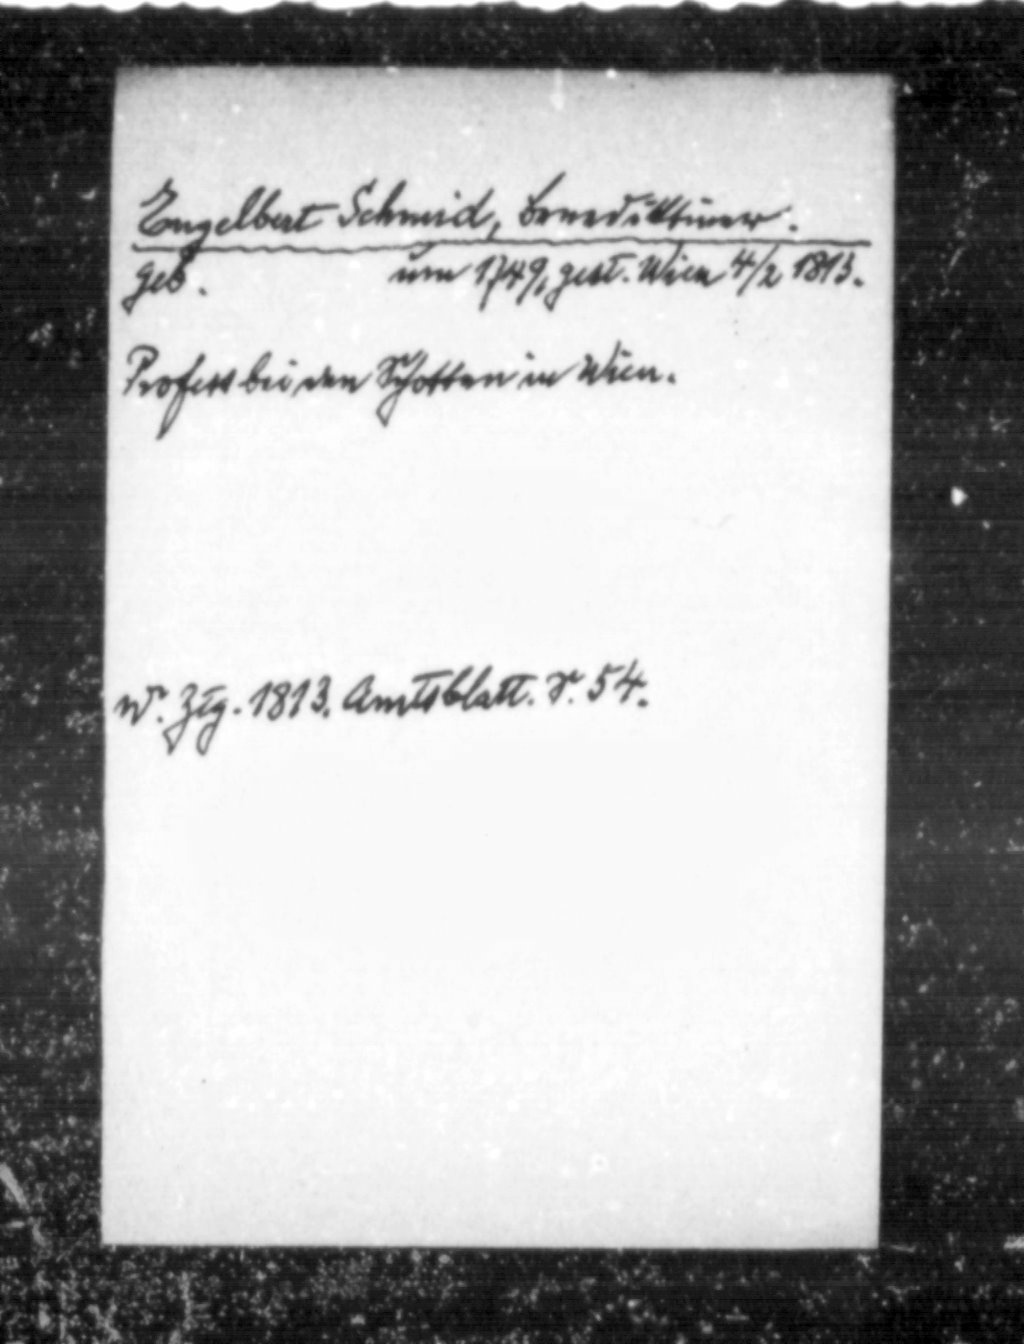 Engelbert Schmid, Benediktiner.
geb. um 1749, gest. Wien 4/2 1813.
Profess bei den Schotten in Wien.
W. Ztg. 1813. Amtsblatt. S. 54.